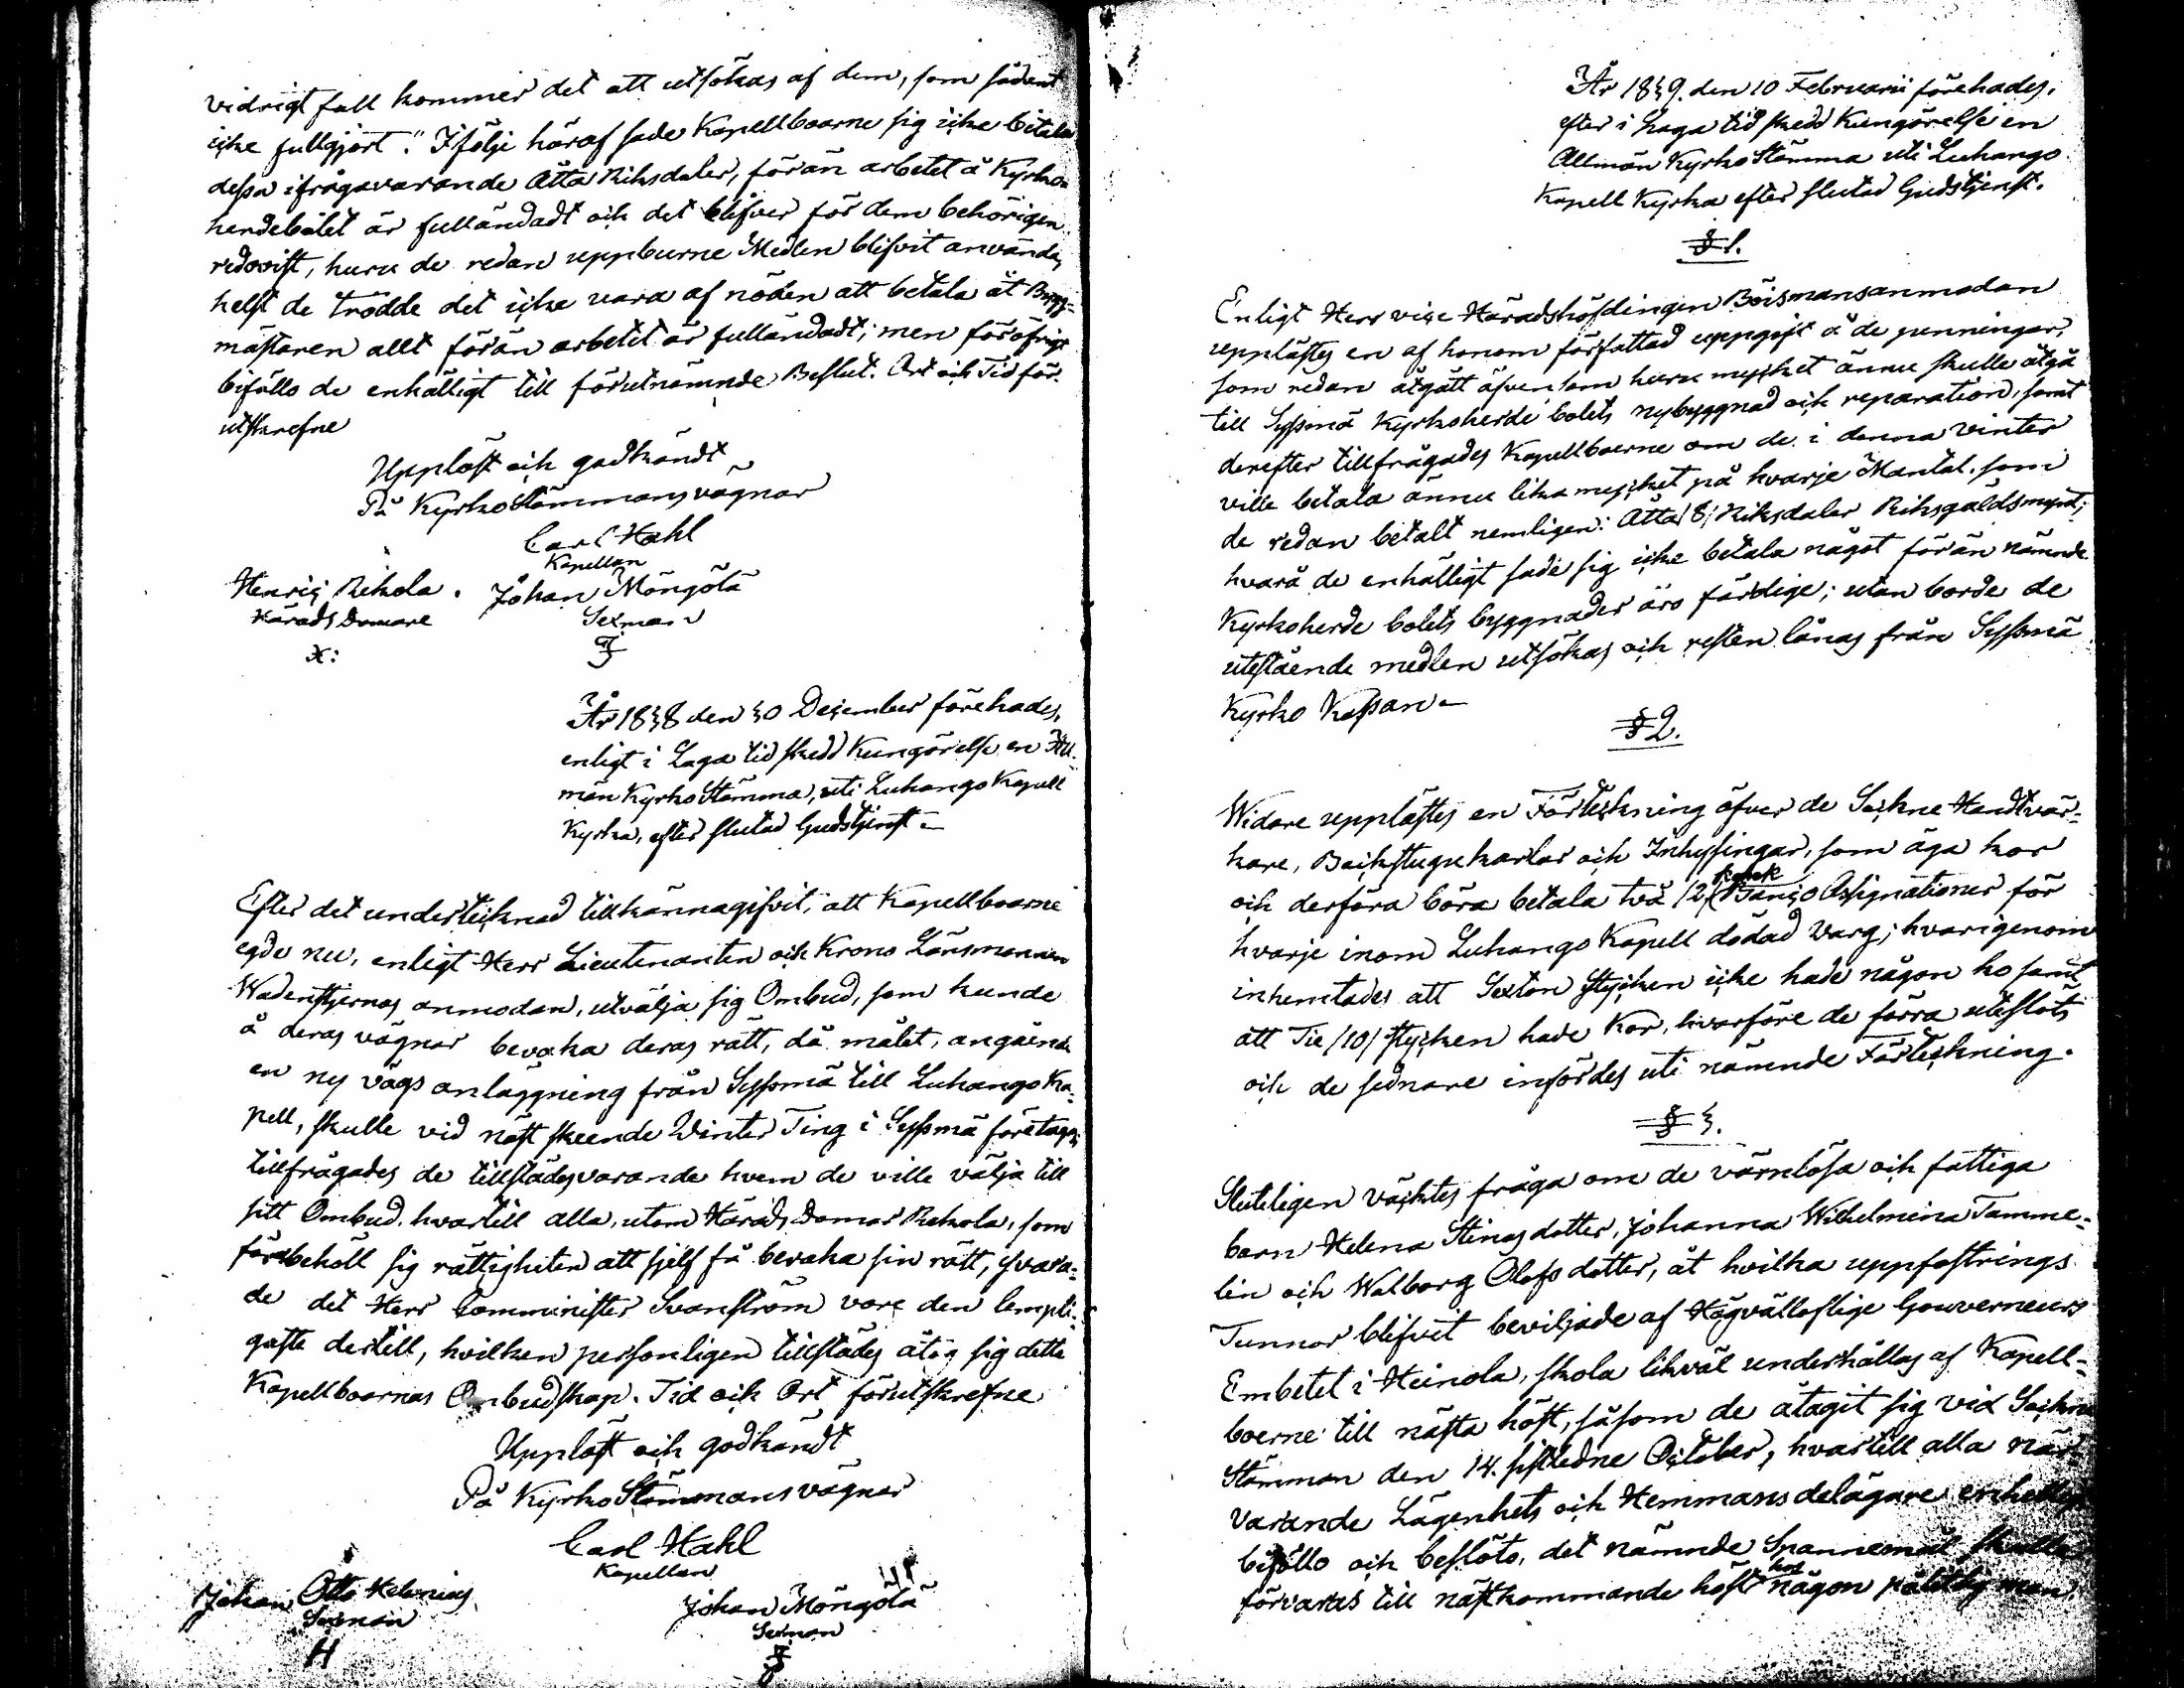 vidrigt fall kommer det att utsökas af dem, som sådant
icke fullgjort." I följe häraf sade Kapellboarne sig icke betala
dessa ifrågavarande Åtta Riksdaler, förän arbetet å Kyrko-
herdebolet är fulländadt och det blifver för dem behörigen
redovist, huru de redan uppburne Medlen blifvit använda,
helst de trodde det icke vara af nöden att betala åt Bygg-
mästaren allt förän arbetet är fulländadt; men för öfrigt
biföllo de enhälligt till förutnämnde Beslut. Ort och Tid för-
utskrefne
Uppläst och godkändt
På Kyrko Stämmans vägnar
Carl Hahl
Kapellan
Henric Rekola. Johan Mongola
Härads Domare Sexman
X:
År 1838 den 30 December förehades,
enligt i Laga tid skedd Kungörelse en All-
män Kyrko Stämma, uti Luhango Kapell
Kyrka, efter slutad Gudstjenst
Efter det undertecknad tillkännagifvit, att Kapellboarne
egde nu, enligt Herr Lieutenanten och Krono Länsmannen
Wadenstjernas anmodan, utvälja sig Ombud, som kunde
å deras vägnar bevaka deras rätt, då målet, angående
en ny vägs anläggning från Sysmä till Luhango Ka-
pell, skulle vid näst skeende Winter Ting i Sysmä företagas,
tillfrågades de tillstädesvarande hvem de ville välja till
sitt Ombud, hvartill alla, utom Härads Domar Rekola, som
förbehöll sig rättigheten att sjelf få bevaka sin rätt, svara-
de det Herr Comminister Svanström vore den lempli-
gaste dertill, hvilken personligen tillstädes åtog sig detta
Kapellboarnas Ombudskap. Tid och Ort förutskrefne
Uppläst och godkändt
På Kyrko Stämmans vägnar
Carl Hahl
Kapellan
Johan Otto Helenius Johan Mongola
Sexman Sexman
H
År 1839. den 10 Februarii förehades,
efter i Laga tid skedd Kungörelse en
Allmän Kyrko Stämma uti Luhango
Kapell Kyrka efter slutad Gudstjenst.
§ 1.
Enligt Herr vice Häradshöfdingen Boismans anmodan
upplästes en af honom författad uppgift å de penningar,
som redan åtgått äfvensom huru mycket ännu skulle åtgå
till Sysmä Kyrkoherde bolets nybyggnad och reparation, samt
derefter tillfrågades Kapellboerne om de i denna Vinter
ville betala ännu lika mycket på hvarje Mantal, som
de redan betalt nemligen: Åtta /8/ Riksdaler Riksgäldsmynt;
hvarå de enhälligt sade sig icke betala något förän nämnde
Kyrkoherde bolets byggnader äro färdige; utan borde de
utestående medlen utsökas och resten lånas från Sysmä
Kyrko Kassan
§ 2.
Widare upplästes en Förteckning öfver de Sockne Handtvär-
kare, Backstugukarlar och Inhysingar, som äga kor
och derföra böra betala två /2/ kopek Banco Assignationer för
hvarje inom Luhango Kapell dödad Varg; hvarigenom
inhemtades att Sexton stycken icke hade någon ko samt
att Tie /10/ stycken hade Kor, hvarföre de förra uteslöts
och de sednare infördes uti nämnde Förteckning.
§ 3.
Sluteligen väcktes fråga om de värnlösa och fattiga
barn Helena Stinas dotter, Johanna Wilhelmina Tamme-
lin och Walborg Olofs dotter, åt hvilka uppfostrings
Tunnor blifvit beviljade af Högvälloflige Gouverneurs
Embetet i Heinola, skola likväl underhållas af Kapell-
boerne till nästa höst, såsom de åtagit sig vid Sockne
Stämman den 14. sistledne October, hvartill alla när-
varande Lägenhets och Hemmans delägare enhälligt
biföllo och beslöto, det nämnde Spannemål skulle
förvaras till nästkommande höst hos någon pålitlig man.